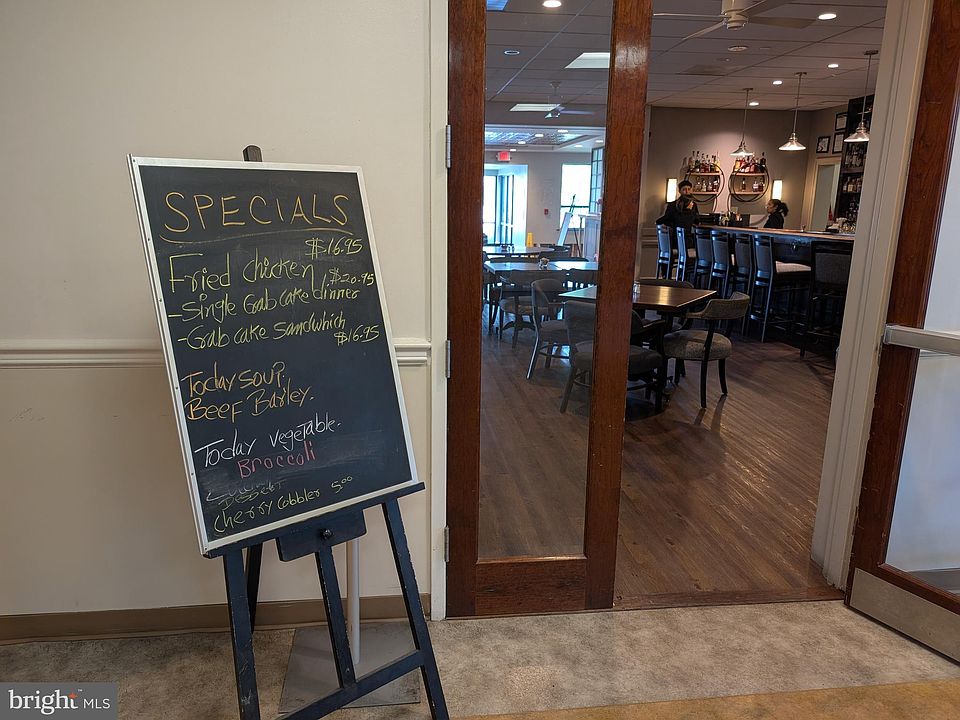 SPECIALS
Fried chicken $16.95
-Single Crab cake dinner $20.95
-Crab cake Sandwhich $16.95
Today soup.
Beef Barley.
Today vegetable.
Broccoli
Cherry cobbler 5.00
bright MLS